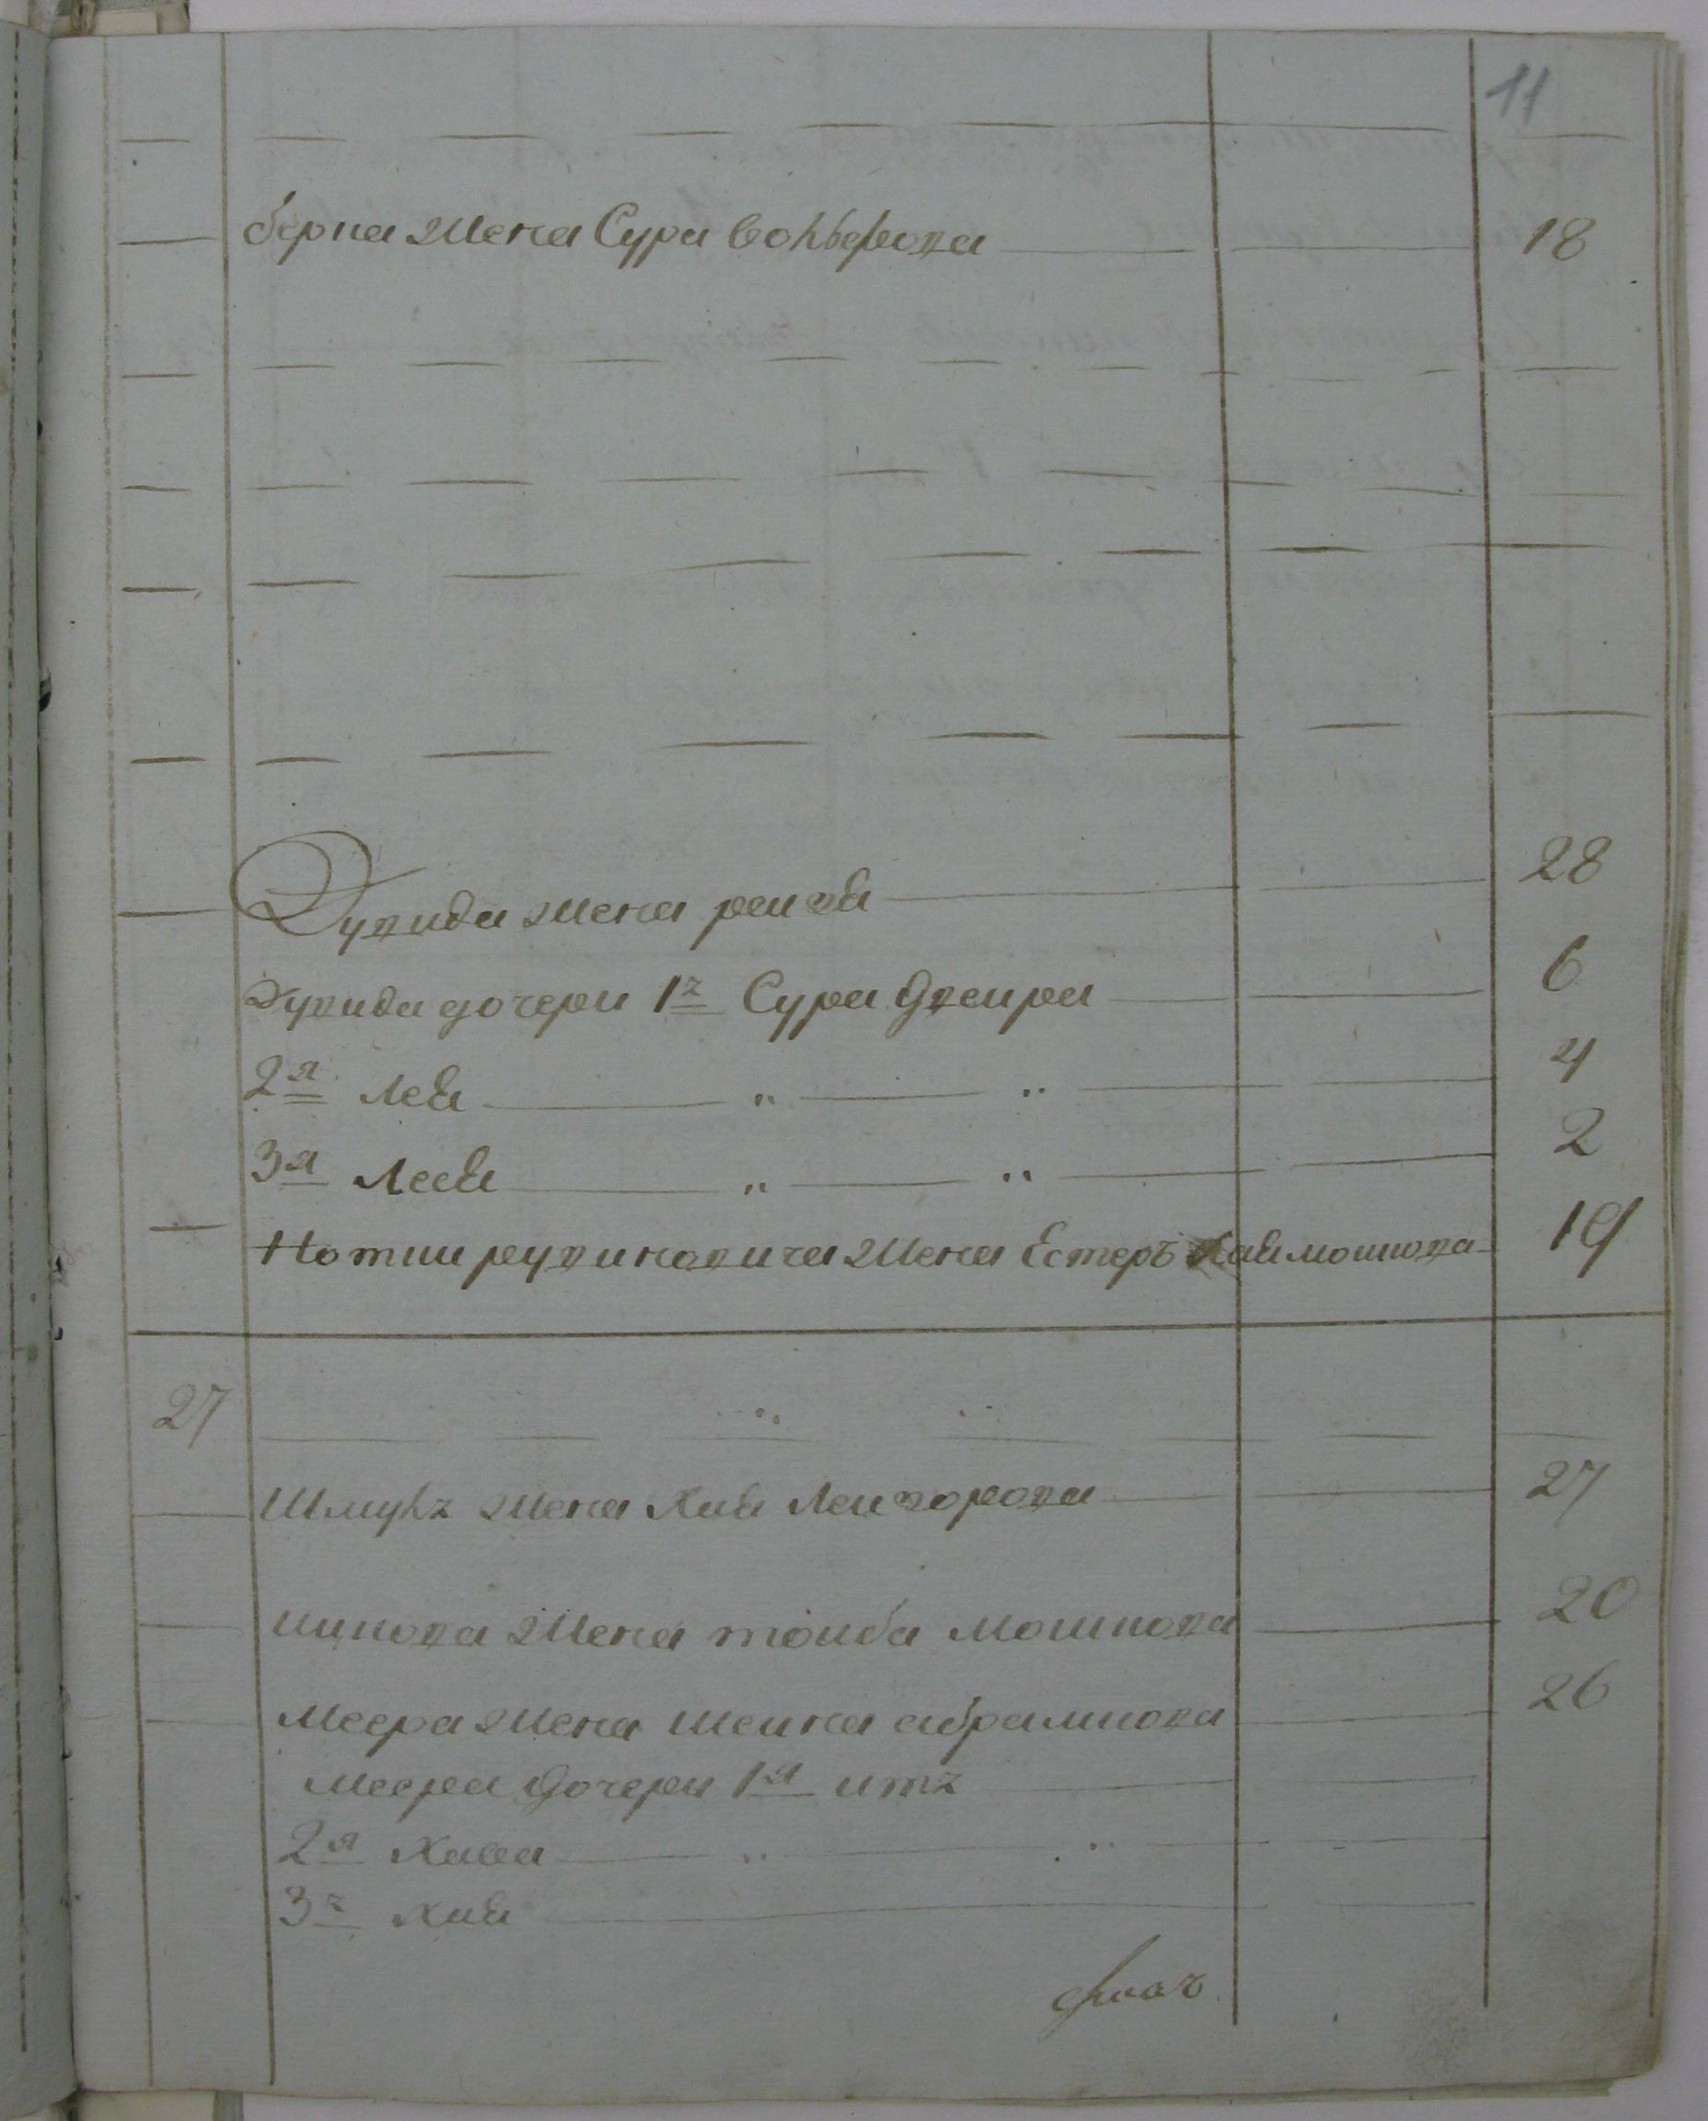 11
берка жена Сура Вольфова 18
Дувида жена рейза 28
Дувида дочери 1я Сура Двейра 6
2я Лея " " 4
3я Лея " " 2
Нотки рувиновича жена Естеръ Хаимошкова 19
27
Шмуль жена Хая Лейзорова 27
ицкова жена тойба Мошкова 20
Меера жена шейна абрамкова 26
Меера дочери 1я итъ
2я Хася " "
3я хая